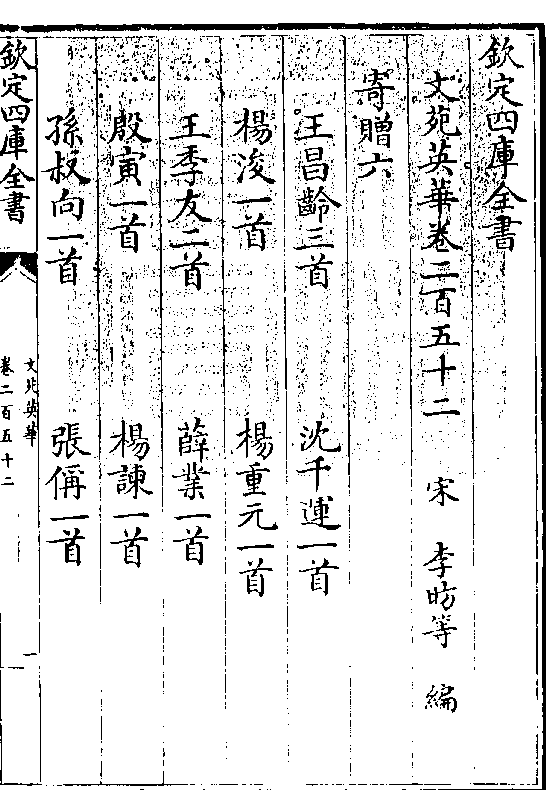 欽定四庫全書
文苑英華卷二百五十二 宋 李昉等 編
寄贈六
王昌齡三首 沈千運一首
楊浚一首 楊重元一首
王季友二首 薛業一首
殷寅一首 楊諫一首
孫叔向一首 張偁一首
欽定四庫全書
文苑英華
卷二百五十二
一